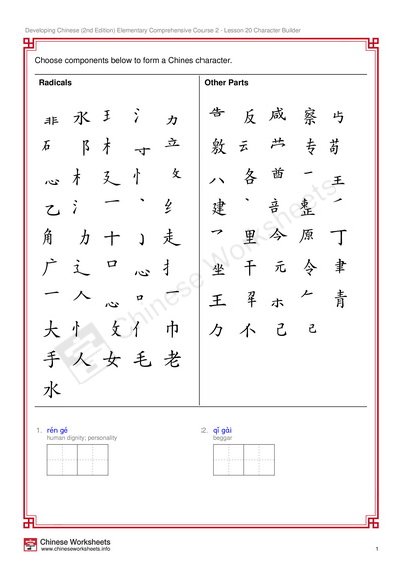 Developing Chinese (2nd Edition) Elementary Comprehensive Course 2 - Lesson 20 Character Builder
Choose components below to form a Chines character.
Radicals
非 水 王 氵 力
石 阝 木 寸 立
心 木 廴 忄 攵
乙 氵 一 丶 纟
角 力 十 亅 走
广 辶 口 心 扌
一 人 心 口
大 忄 攵 亻 巾
手 人 女 毛 老
水
Other Parts
告 反 咸 察
敫 云 艹 专 苟
八 各 酋 一 王
建 音 整
乛 里 今 原 丁
坐 干 元 令 聿
王 𠂉 青
力 不 己 己
1. rén gé
human dignity; personality
2. qǐ gài
beggar
Chinese Worksheets
Chinese Worksheets
www.chineseworksheets.info
1